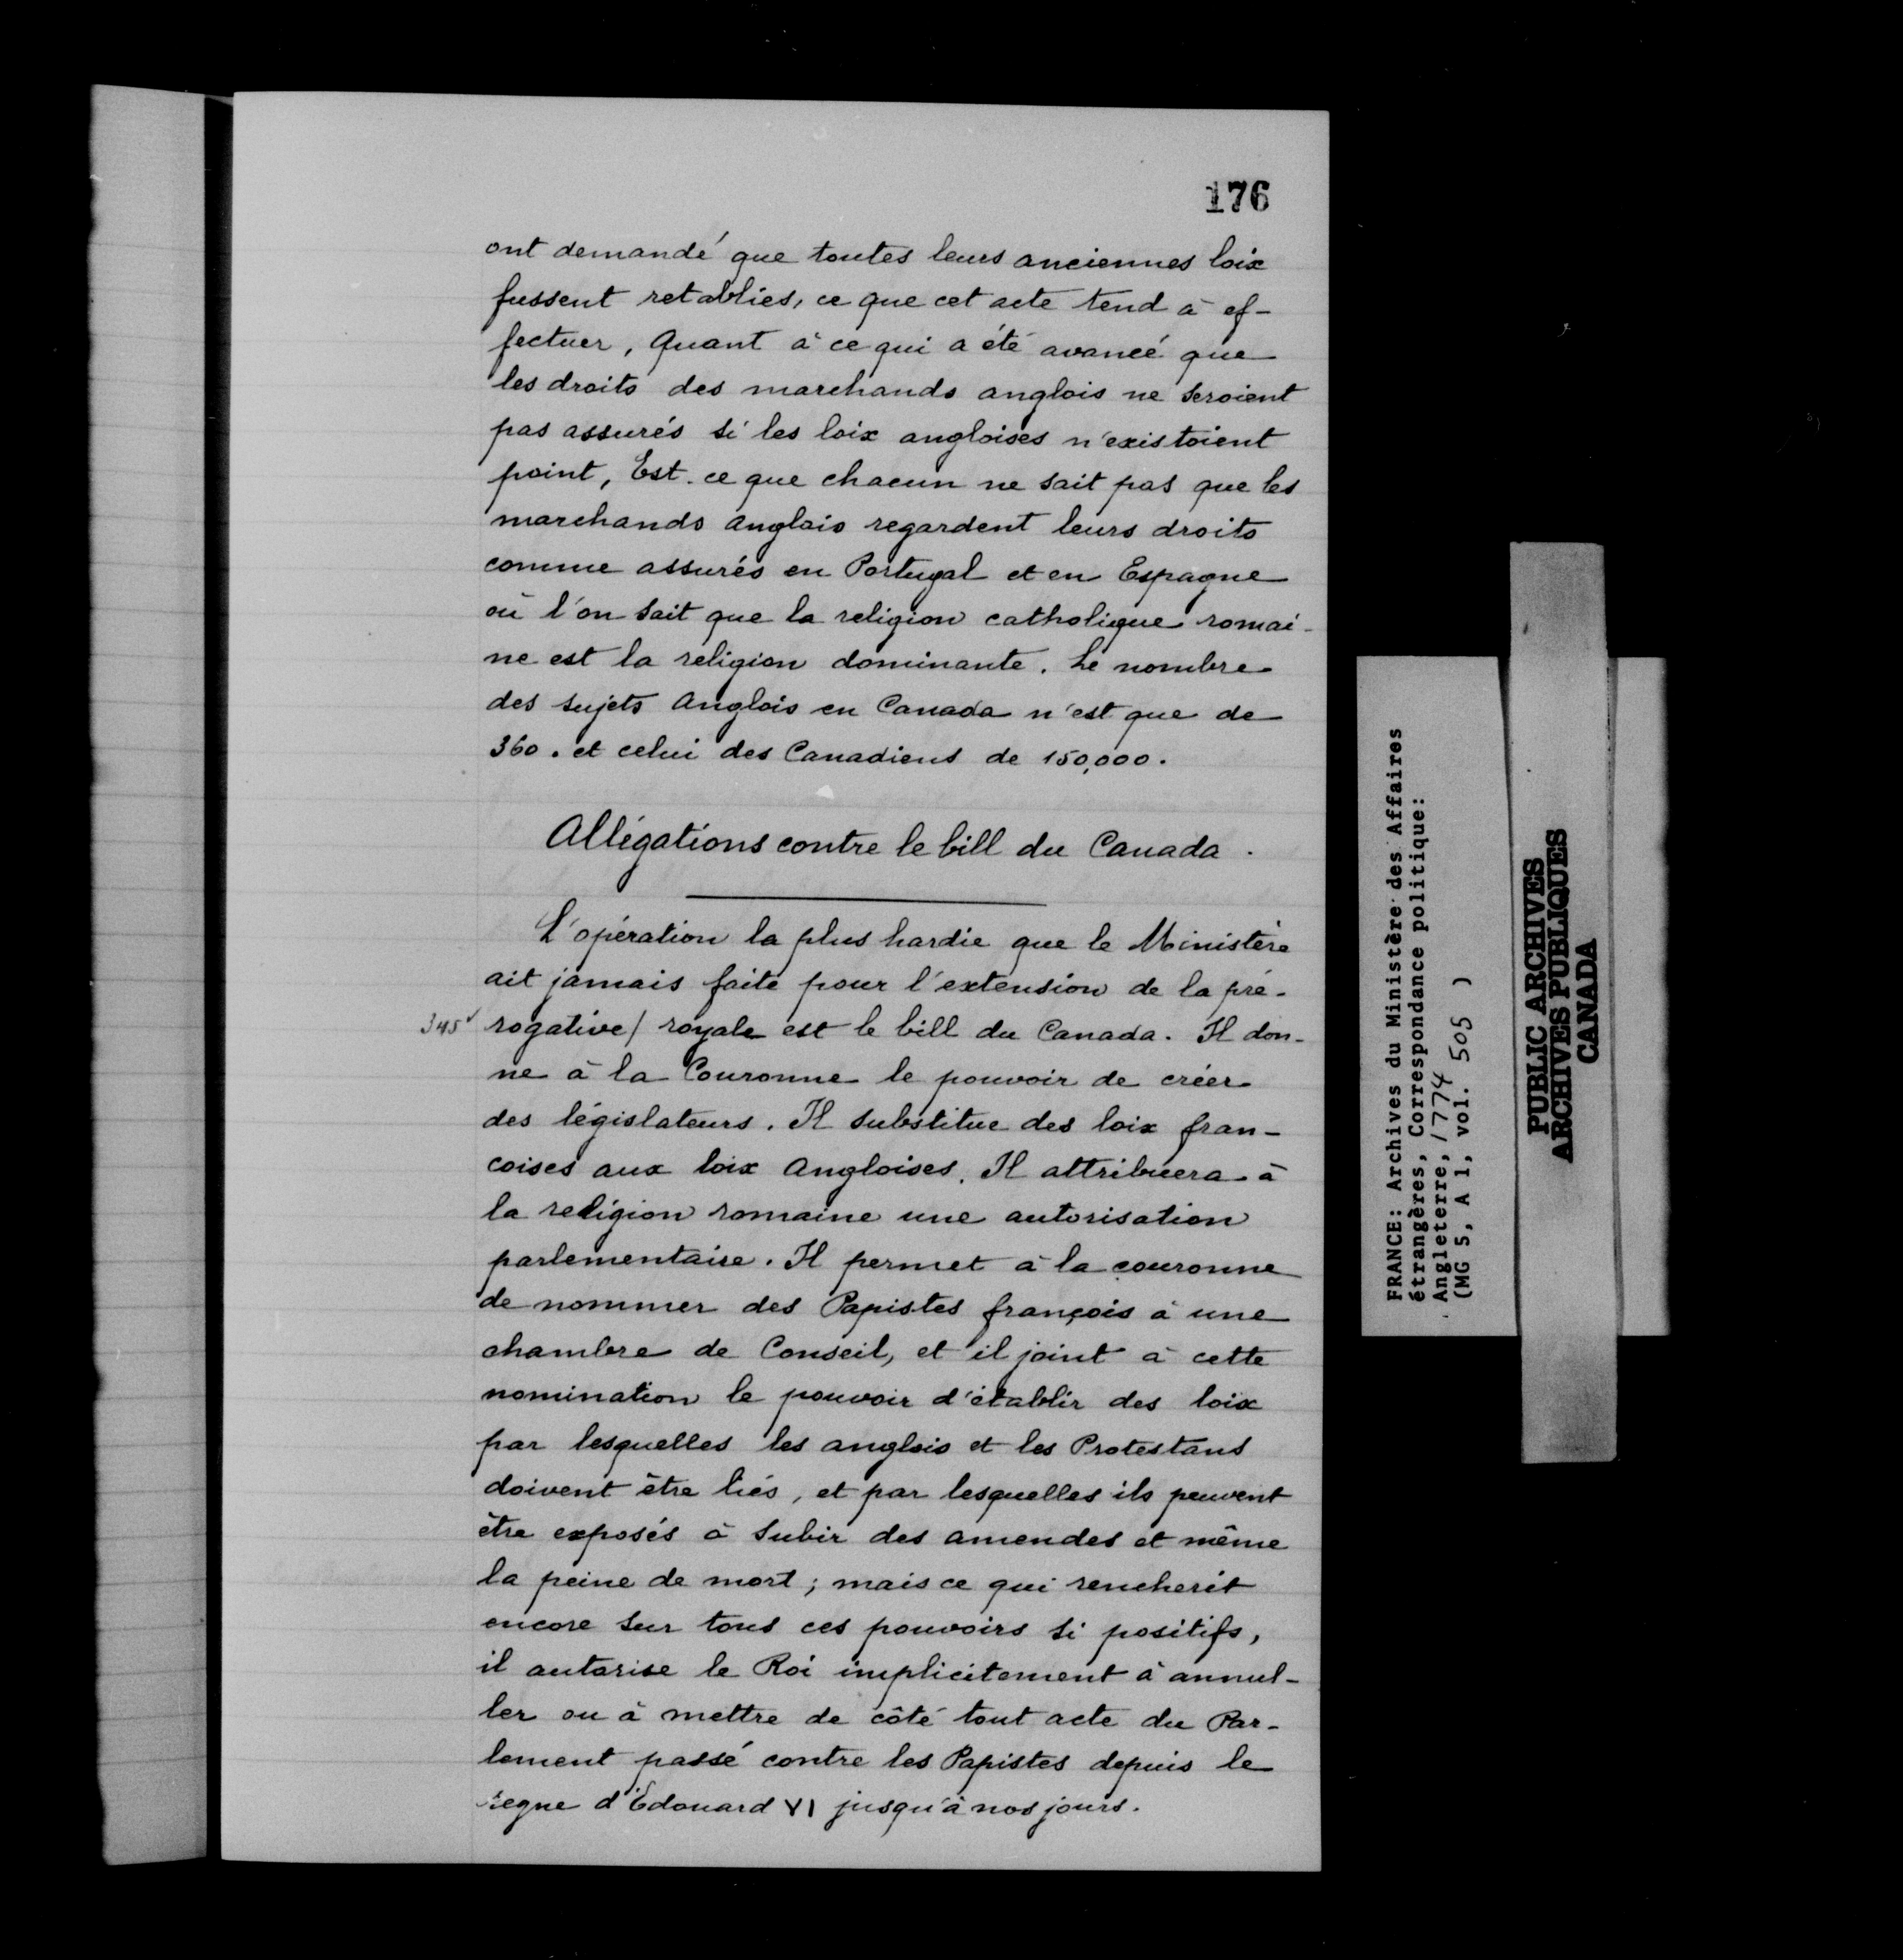 176
ont demandé que toutes leurs anciennes loix
fussent retablies, ce que cet acte tend à ef-
fectuer, Quant à ce qui a été avancé que
les droits des marchands anglois ne seroient
pas assurés si les loix angloises n'existoient
point, Est-ce que chacun ne sait pas que les
marchands anglais regardent leurs droits
comme assurés en Portugal et en Espagne
où l'on sait que la religion catholique romai-
ne est la religion dominante. Le nombre
des sujets Anglois en Canada n'est que de
360. et celui des Canadiens de 150,000.
Allégations contre le bill du Canada.
L'opération la plus hardie que le Ministère
ait jamais faite pour l'extension de la pré-
345v rogative/ royale est le bill du Canada. Il don-
ne à la Couronne le pouvoir de créer
des législateurs. Il substitue des loix fran-
coises aux loix Angloises. Il attribuera à
la religion romaine une autorisation
parlementaire. Il permet à la couronne
de nommer des Papistes françois à une
chambre de Conseil, et il joint à cette
nomination le pouvoir d'établir des loix
par lesquelles les anglois et les Protestans
doivent être liés, et par lesquelles ils peuvent
être exposés à subir des amendes et même
la peine de mort; mais ce qui rencherit
encore sur tous ces pouvoirs si positifs,
il autorise le Roi implicitement à annul-
ler ou à mettre de côté tout acte du Par-
lement passé contre les Papistes depuis le
regne d'Edouard VI jusqu'à nos jours.
FRANCE: Archives du Ministère des Affaires
étrangères, Correspondance politique:
Angleterre, 1774
(MG 5, A 1, vol. 505 )
PUBLIC ARCHIVES
ARCHIVES PUBLIQUES
CANADA